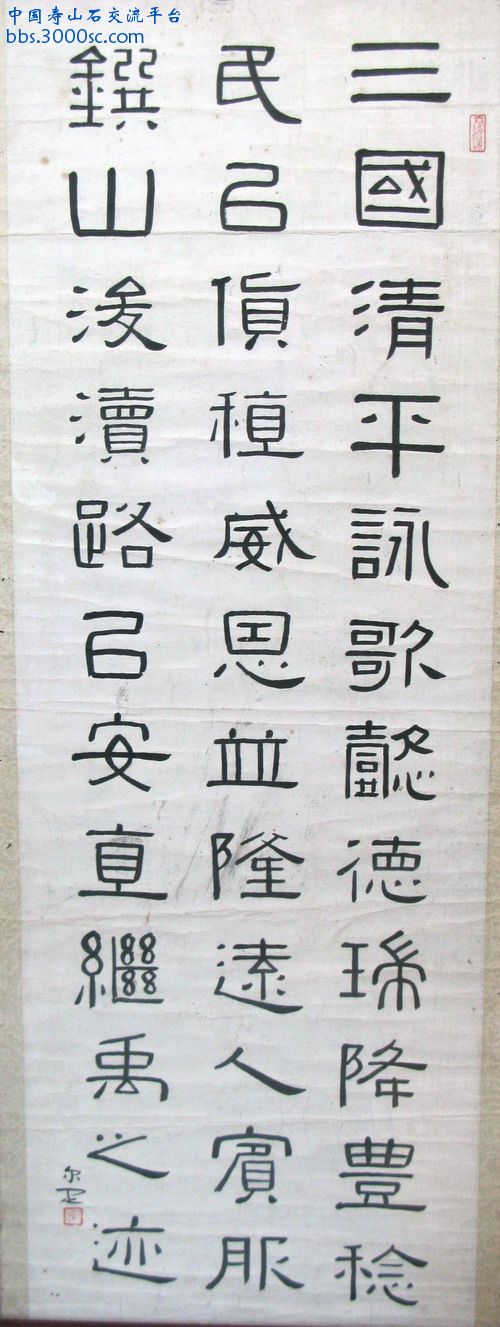 中国寿山石交流平台
bbs.3000sc.com
三國清平詠歌懿德瑞降豊稔
民㠯貨稙威恩並隆遠人賓服
鐉山浚瀆路㠯安直繼禹之迹